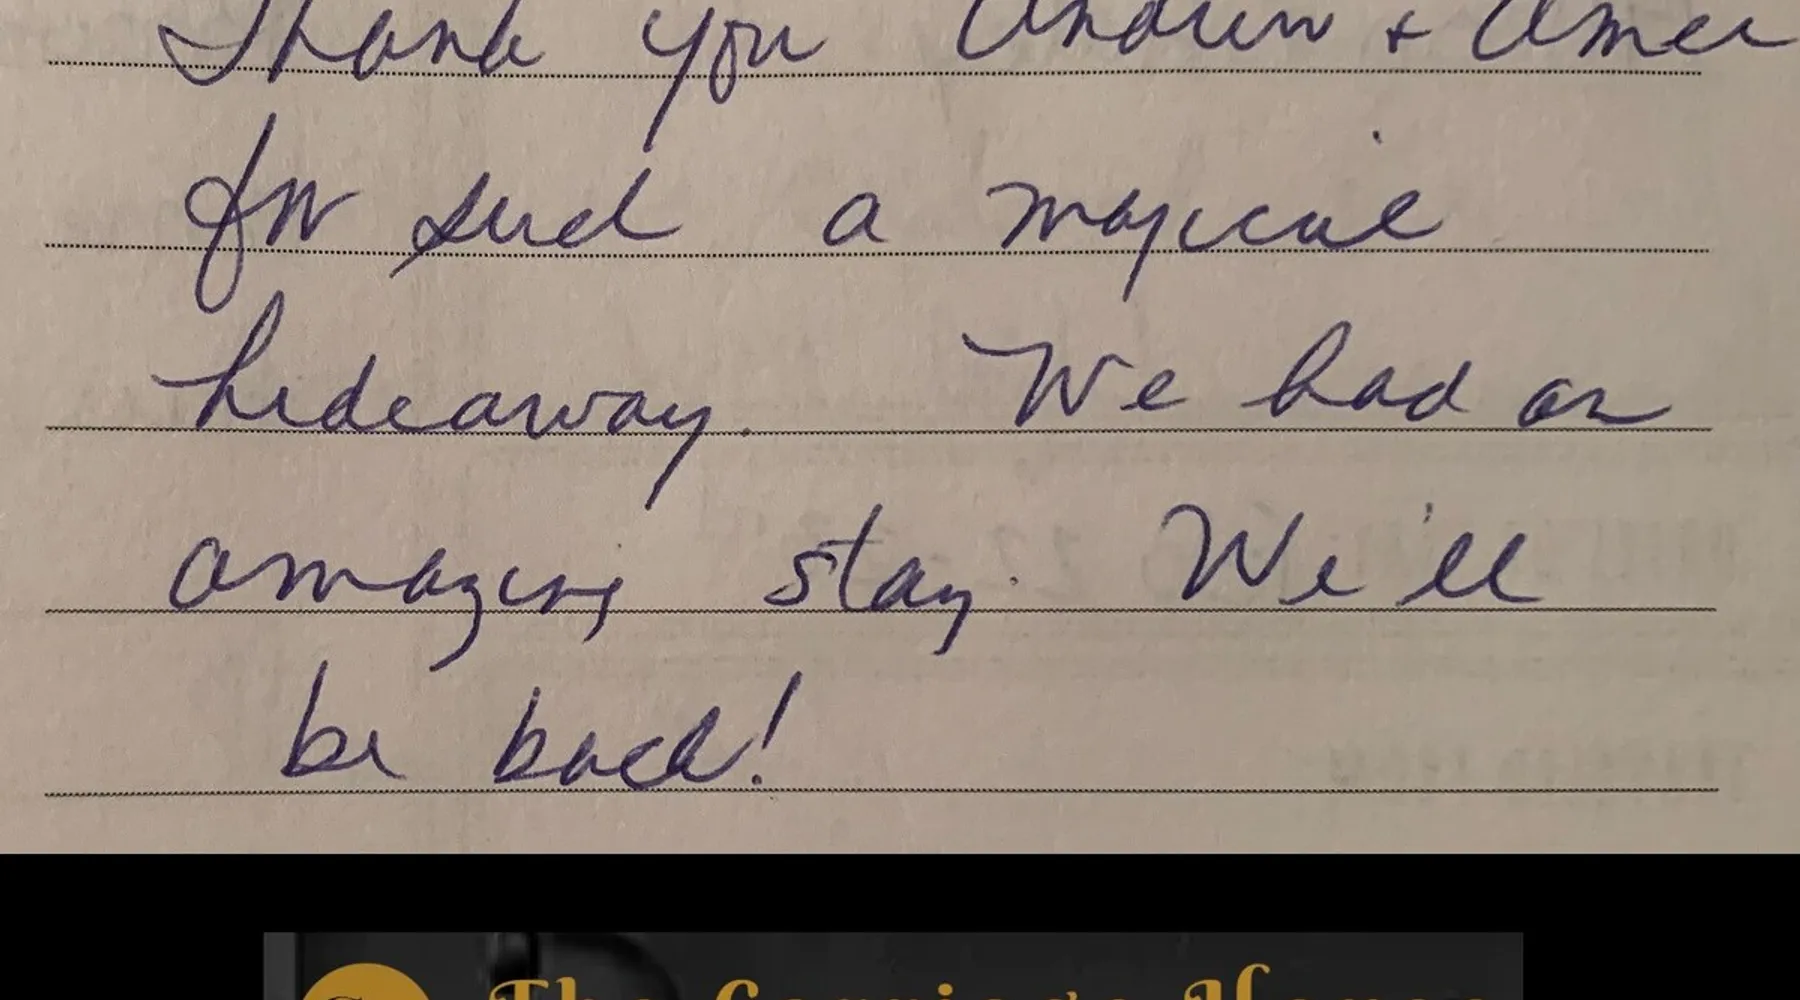 Thank you Andrew +
for such a magical
hideaway. We had an
amazing stay. We'll
be back!
The Carriage House